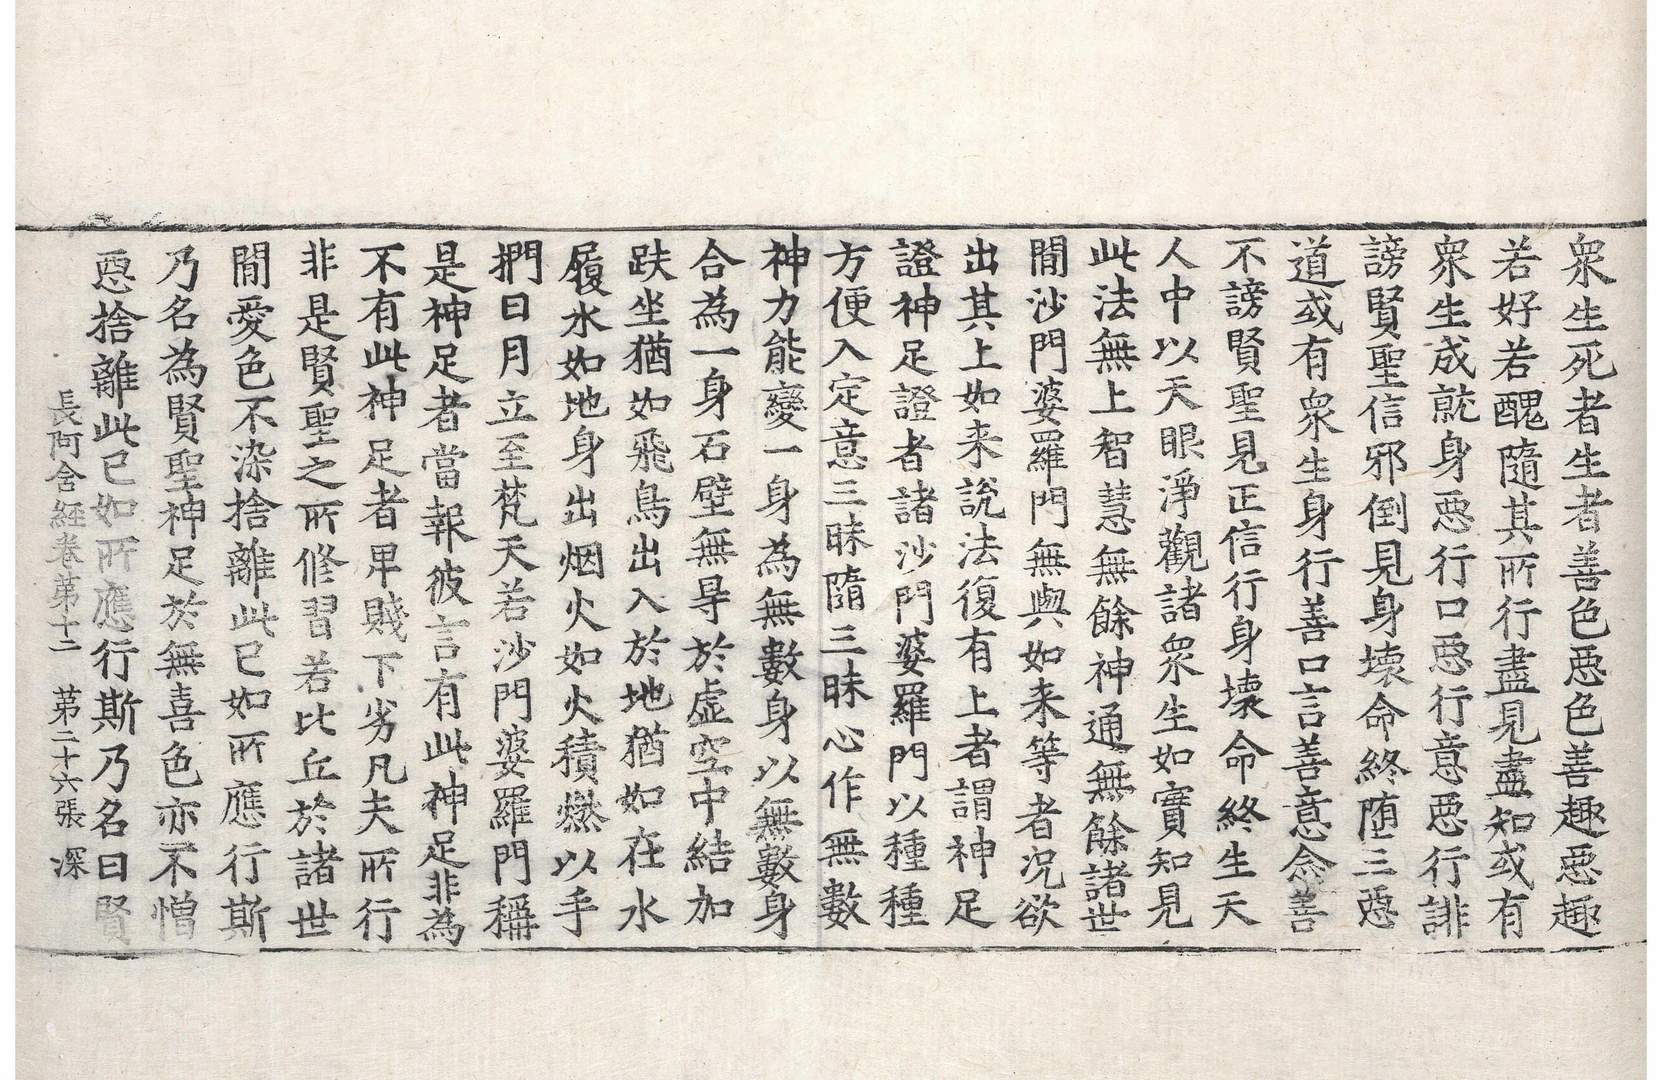 衆生死者生者善色惡色善趣惡趣
若好若醜隨其所行盡見盡知或有
衆生成就身惡行口惡行意惡行誹
謗賢聖信邪倒見身壞命終墮三惡
道或有衆生身行善口言善意念善
不謗賢聖見正信行身壞命終生天
人中以天眼淨觀諸衆生如實知見
此法無上智慧無餘神通無餘諸世
間沙門婆羅門無與如来等者况欲
出其上如来說法復有上者謂神足
證神足證者諸沙門婆羅門以種種
方便入定意三昧隨三昧心作無數
神力能變一身為無數身以無數身
合為一身石壁無㝵於虛空中結加
趺坐猶如飛鳥出入於地猶如在水
履水如地身出烟火如火積燃以手
捫日月立至梵天若沙門婆羅門稱
是神足者當報彼言有此神足非為
不有此神足者卑賤下劣凡夫所行
非是賢聖之所修習若比丘於諸世
間愛色不染捨離此已如所應行斯
乃名為賢聖神足於無喜色亦不憎
惡捨離此已如所應行斯乃名曰賢
長阿含經卷苐十二 苐二十六張 深